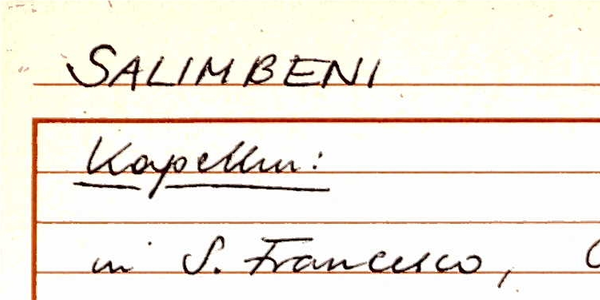 SALIMBENI
Kapellen:
in S. Francesco,